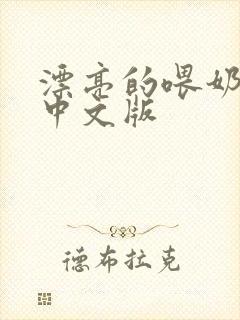 漂亮的喂奶
中文版
德布拉克